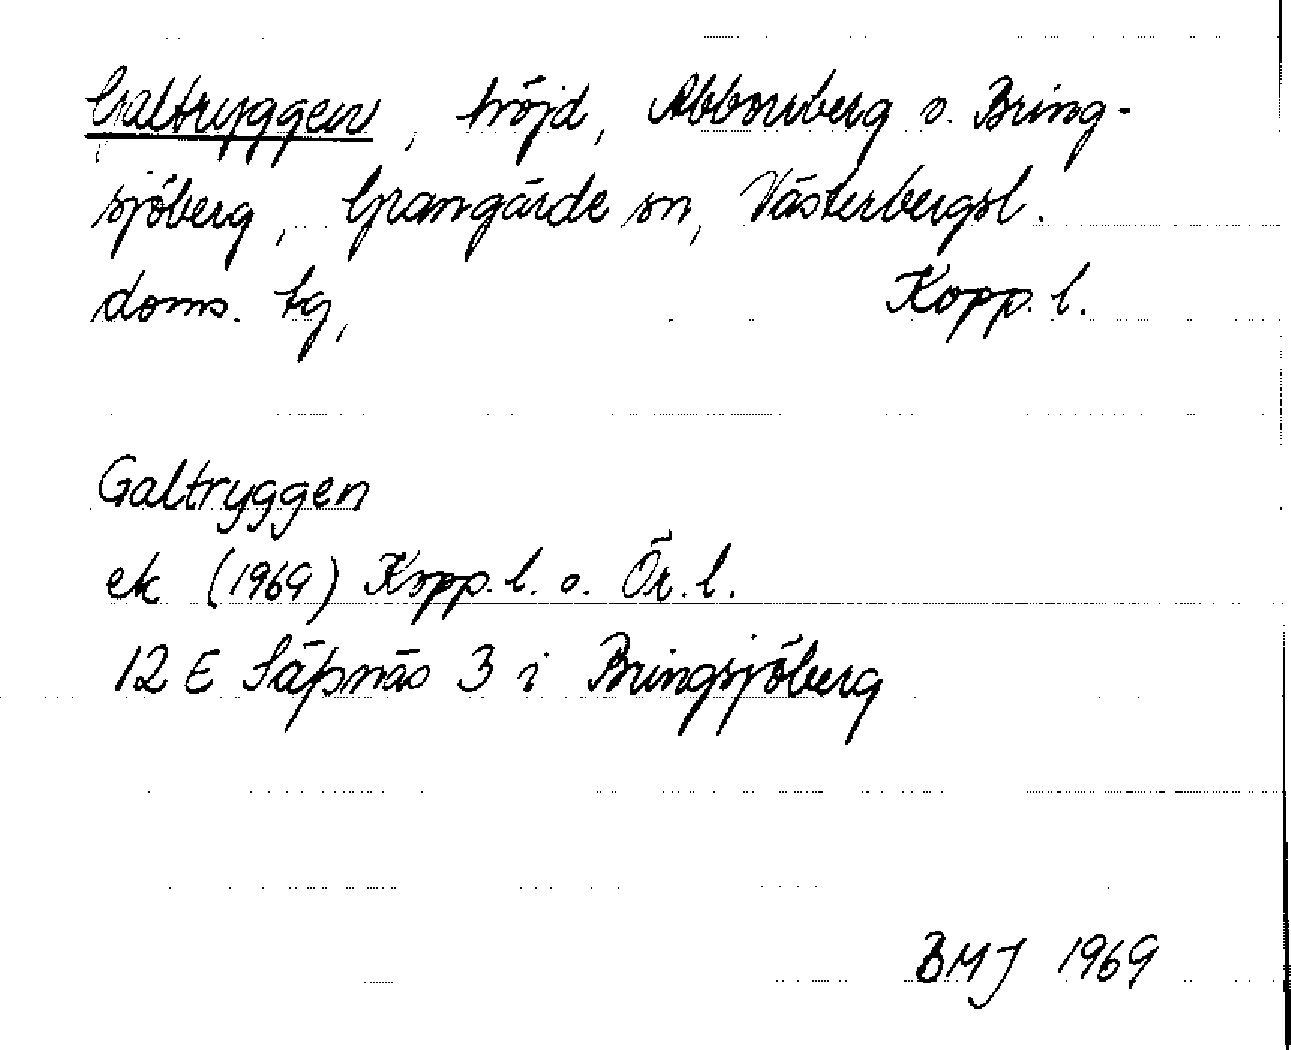 Galtryggen, höjd, Abborrberg o. Bring-
sjöberg, Grangärde sn, Västerbergsl.
doms. tg, Kopp. l.
Galtryggen
ek (1969) Kopp. l. o. Ör. l.
12 E Säfsnäs 3 i Bringsjöberg
BMJ 1969